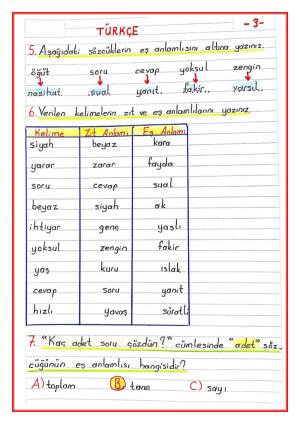 TÜRKÇE
-3-
5. Aşağıdaki sözcüklerin eş anlamlısını altına yazınız.
öğüt soru cevap yoksul zengin
nasihat. .sual yanıt. fakir.. varsıl..
6. Verilen kelimelerin zıt ve eş anlamlılarını yazınız.
Kelime Zıt Anlamı Eş Anlamı
siyah beyaz kara
yarar zarar fayda
soru cevap sual
beyaz siyah ak
ihtiyar genç yaşlı
yoksul zengin fakir
yaş kuru ıslak
cevap soru yanıt
hızlı yavaş süratli
7. "Kaç adet soru çözdün?" cümlesinde "adet" söz-
cüğünün eş anlamlısı hangisidir?
A) toplam B) tane C) sayı